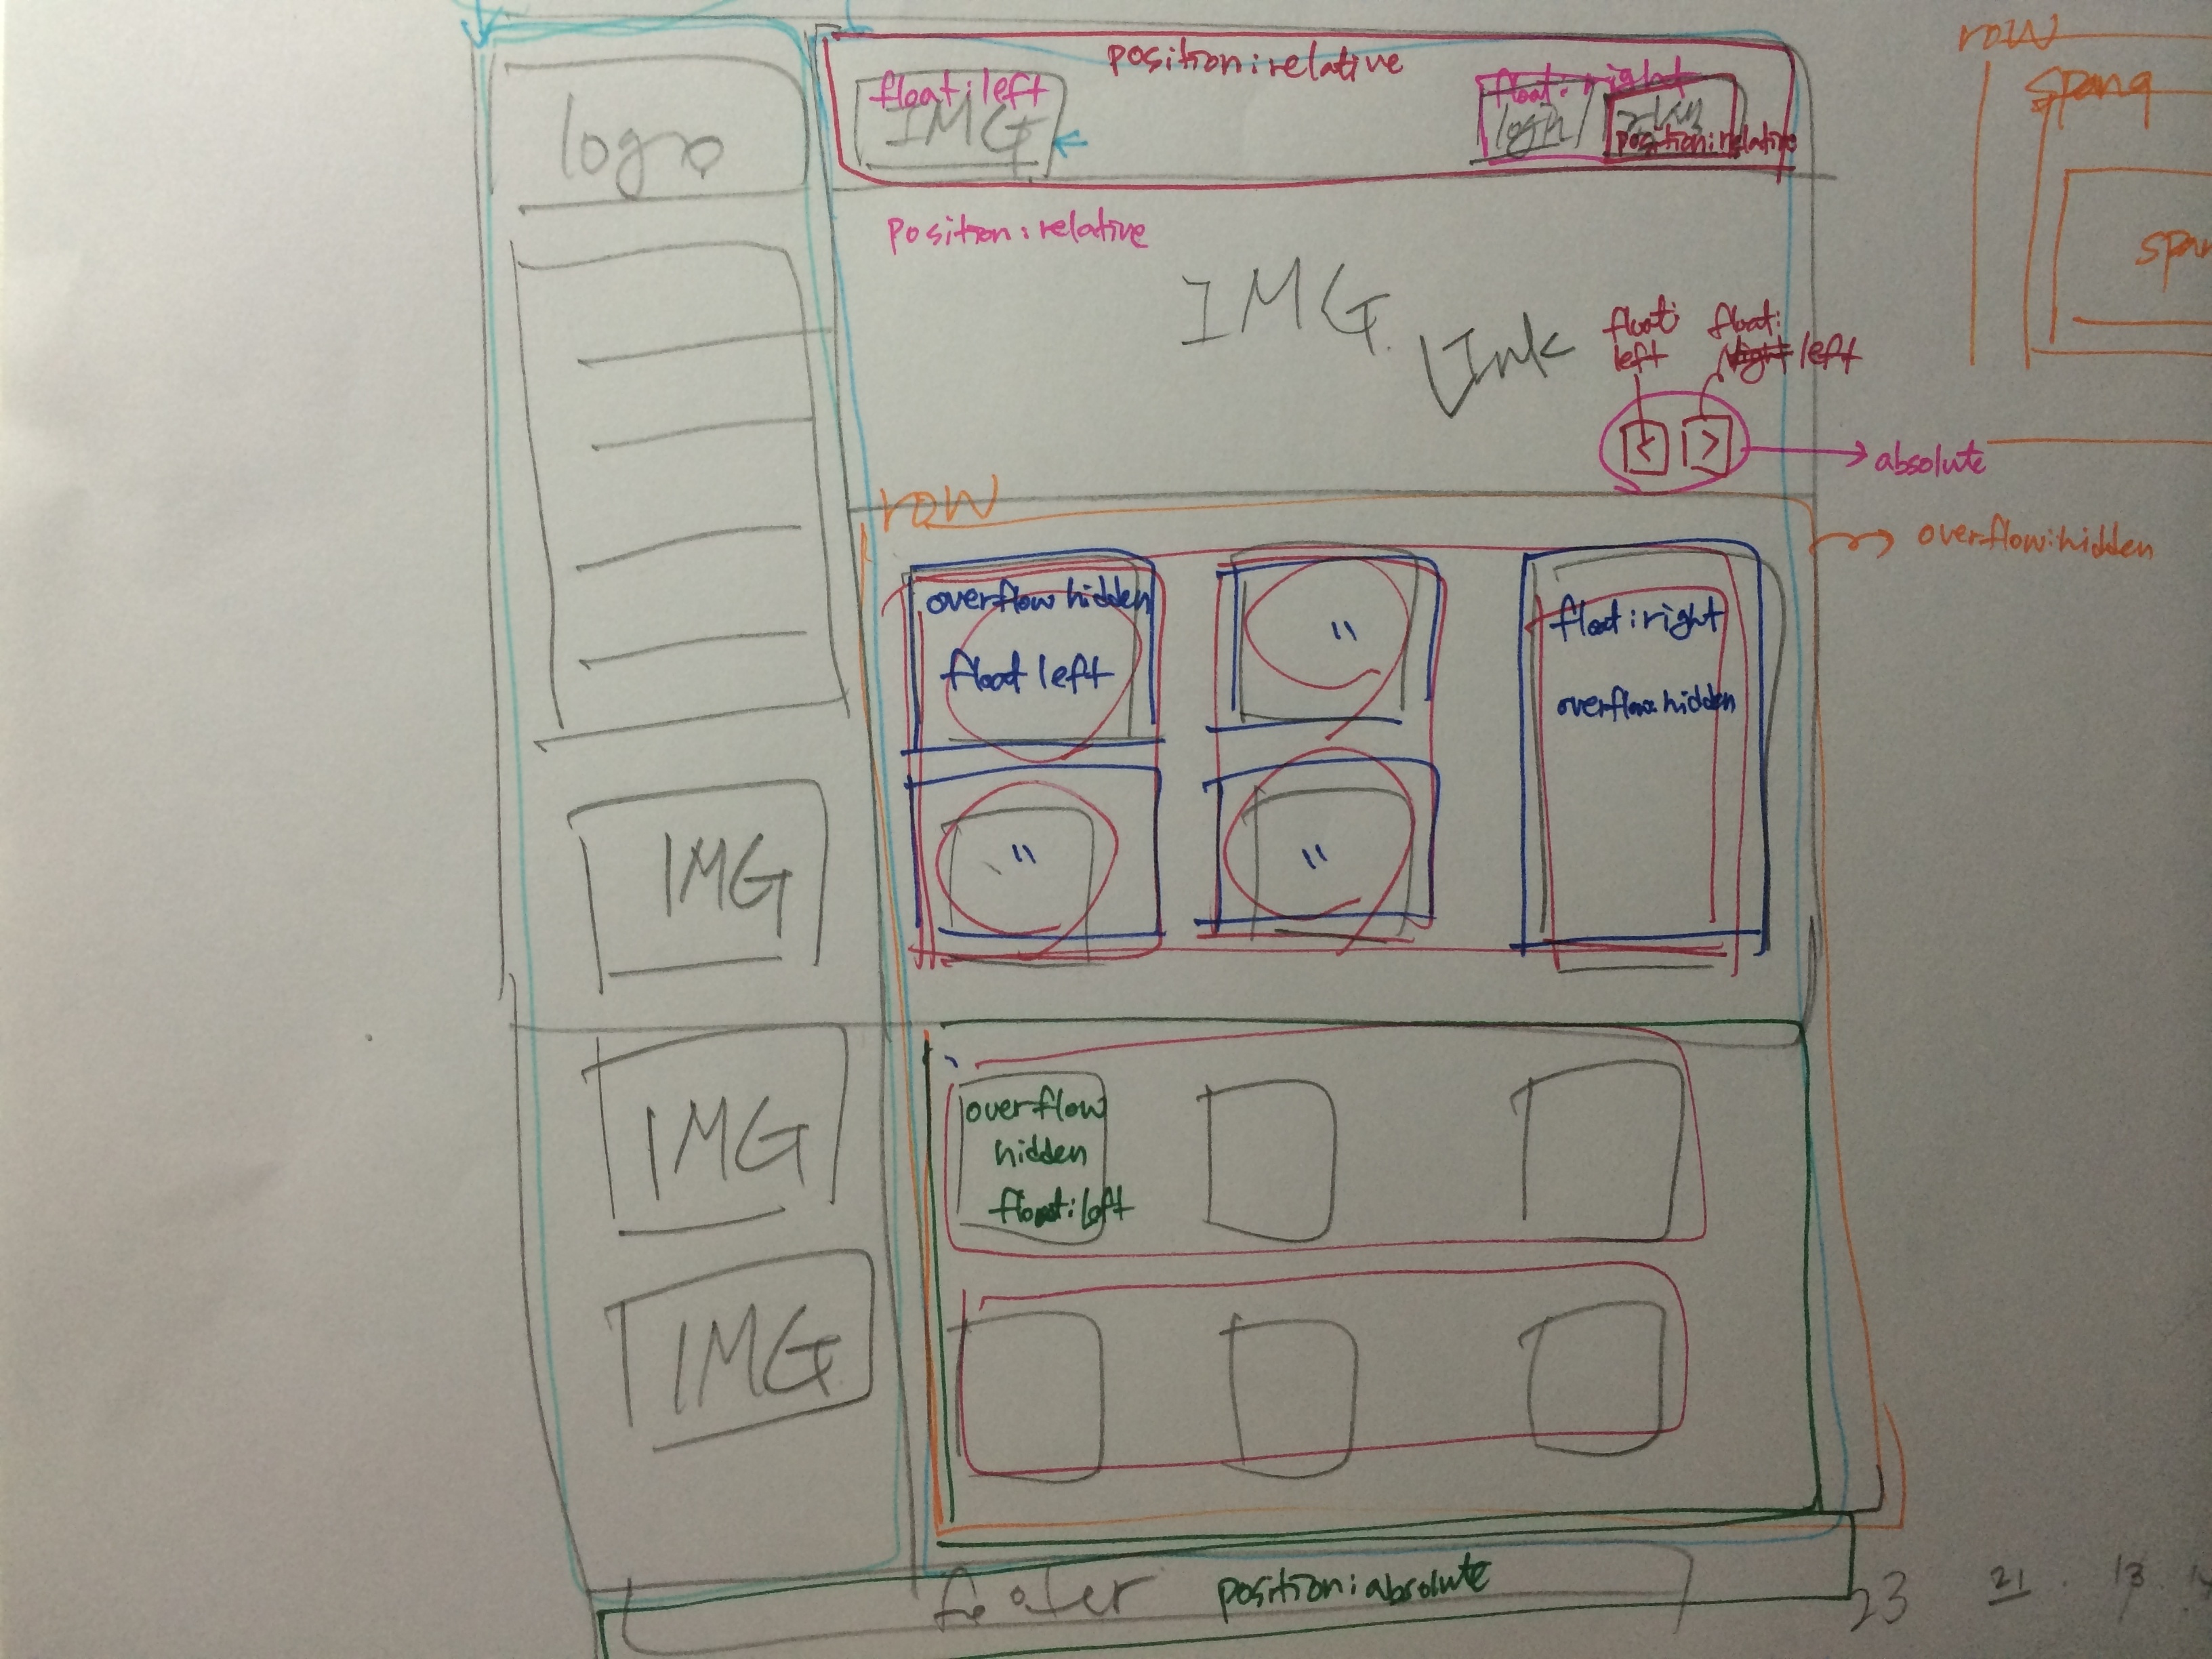 row
span9
position:relative
float:left
float:right
logo
IMG
login
position:relative
position:relative
IMG
Link
float:
left
float:
right left
< >
absolute
row
overflow:hidden
overflow hidden
float left
"
float:right
overflow:hidden
"
"
IMG
IMG
overflow
hidden
float:left
IMG
footer
position:absolute
23
21
13